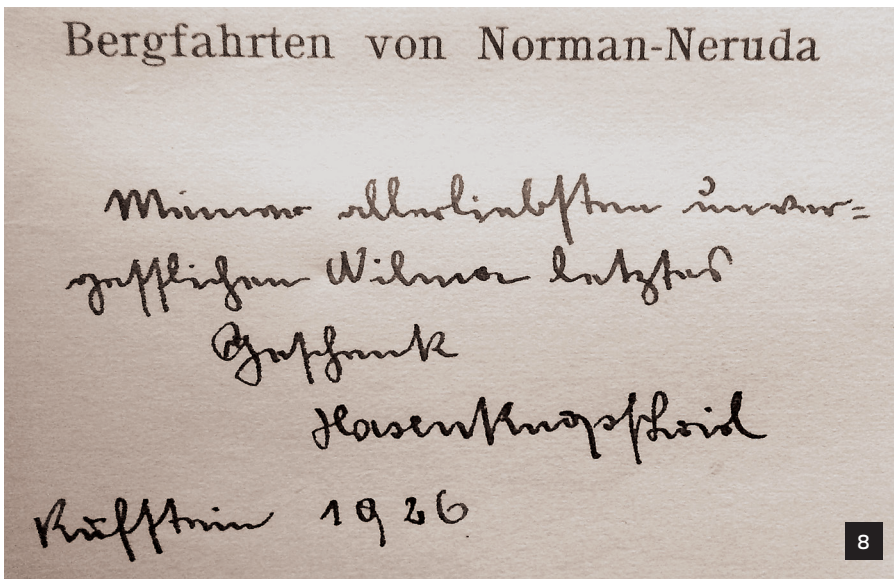 Bergfahrten von Norman-Neruda
Meiner allerliebsten unver=
gesslichen Wilma letztes
Geschenk
Kufstein 1926
8